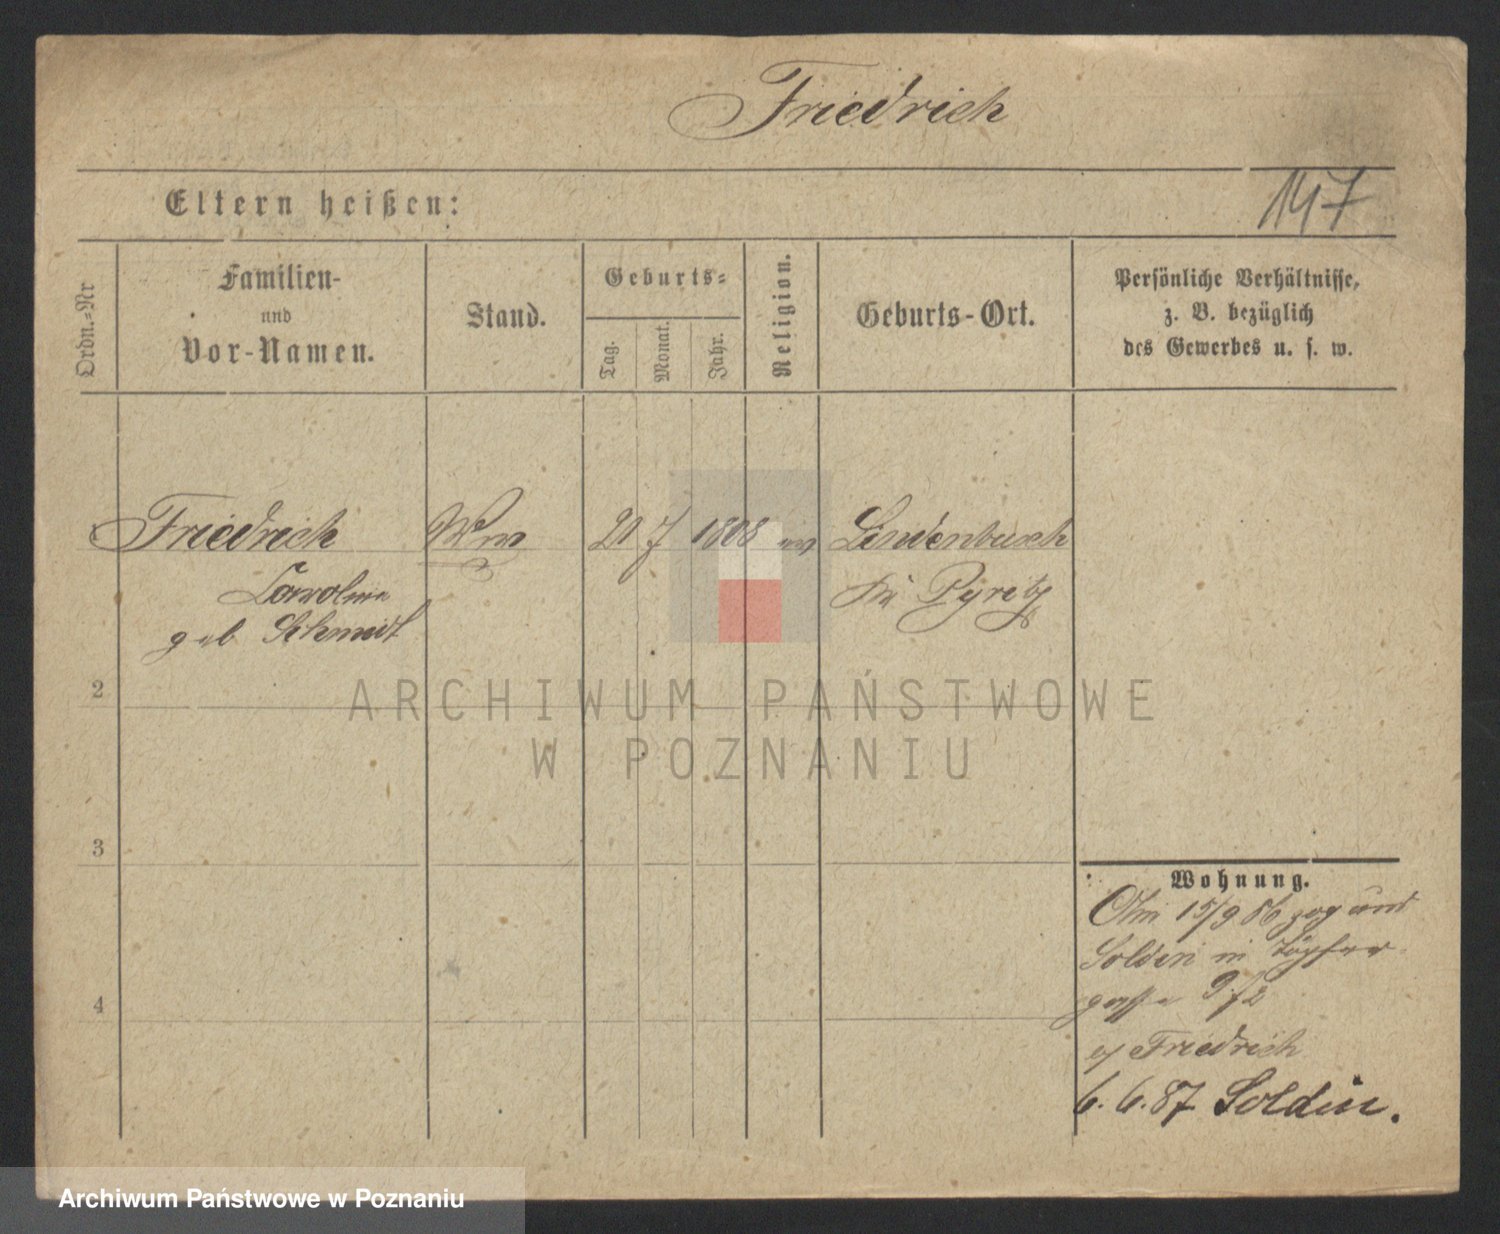 Friedrich
147
Eltern heißen:
Ordn.=Nr
Familien-
und
Vor-Namen.
Stand.
Geburts=
Tag.
Monat.
Jahr.
Religion.
Geburts-Ort.
Persönliche Verhältnisse,
z. B. bezüglich
des Gewerbes u. s. w.
Friedrich Ww 20 7 1808 ev Lindenbusch
Caroline
geb Schmidt
Pyritz
2
3
4
Wohnung.
15/9 86 zog
Soldin in Töpfer
gasse
Friedrich
6. 6. 87 Soldin.
ARCHIWUM PAŃSTWOWE
W POZNANIU
Archiwum Państwowe w Poznaniu